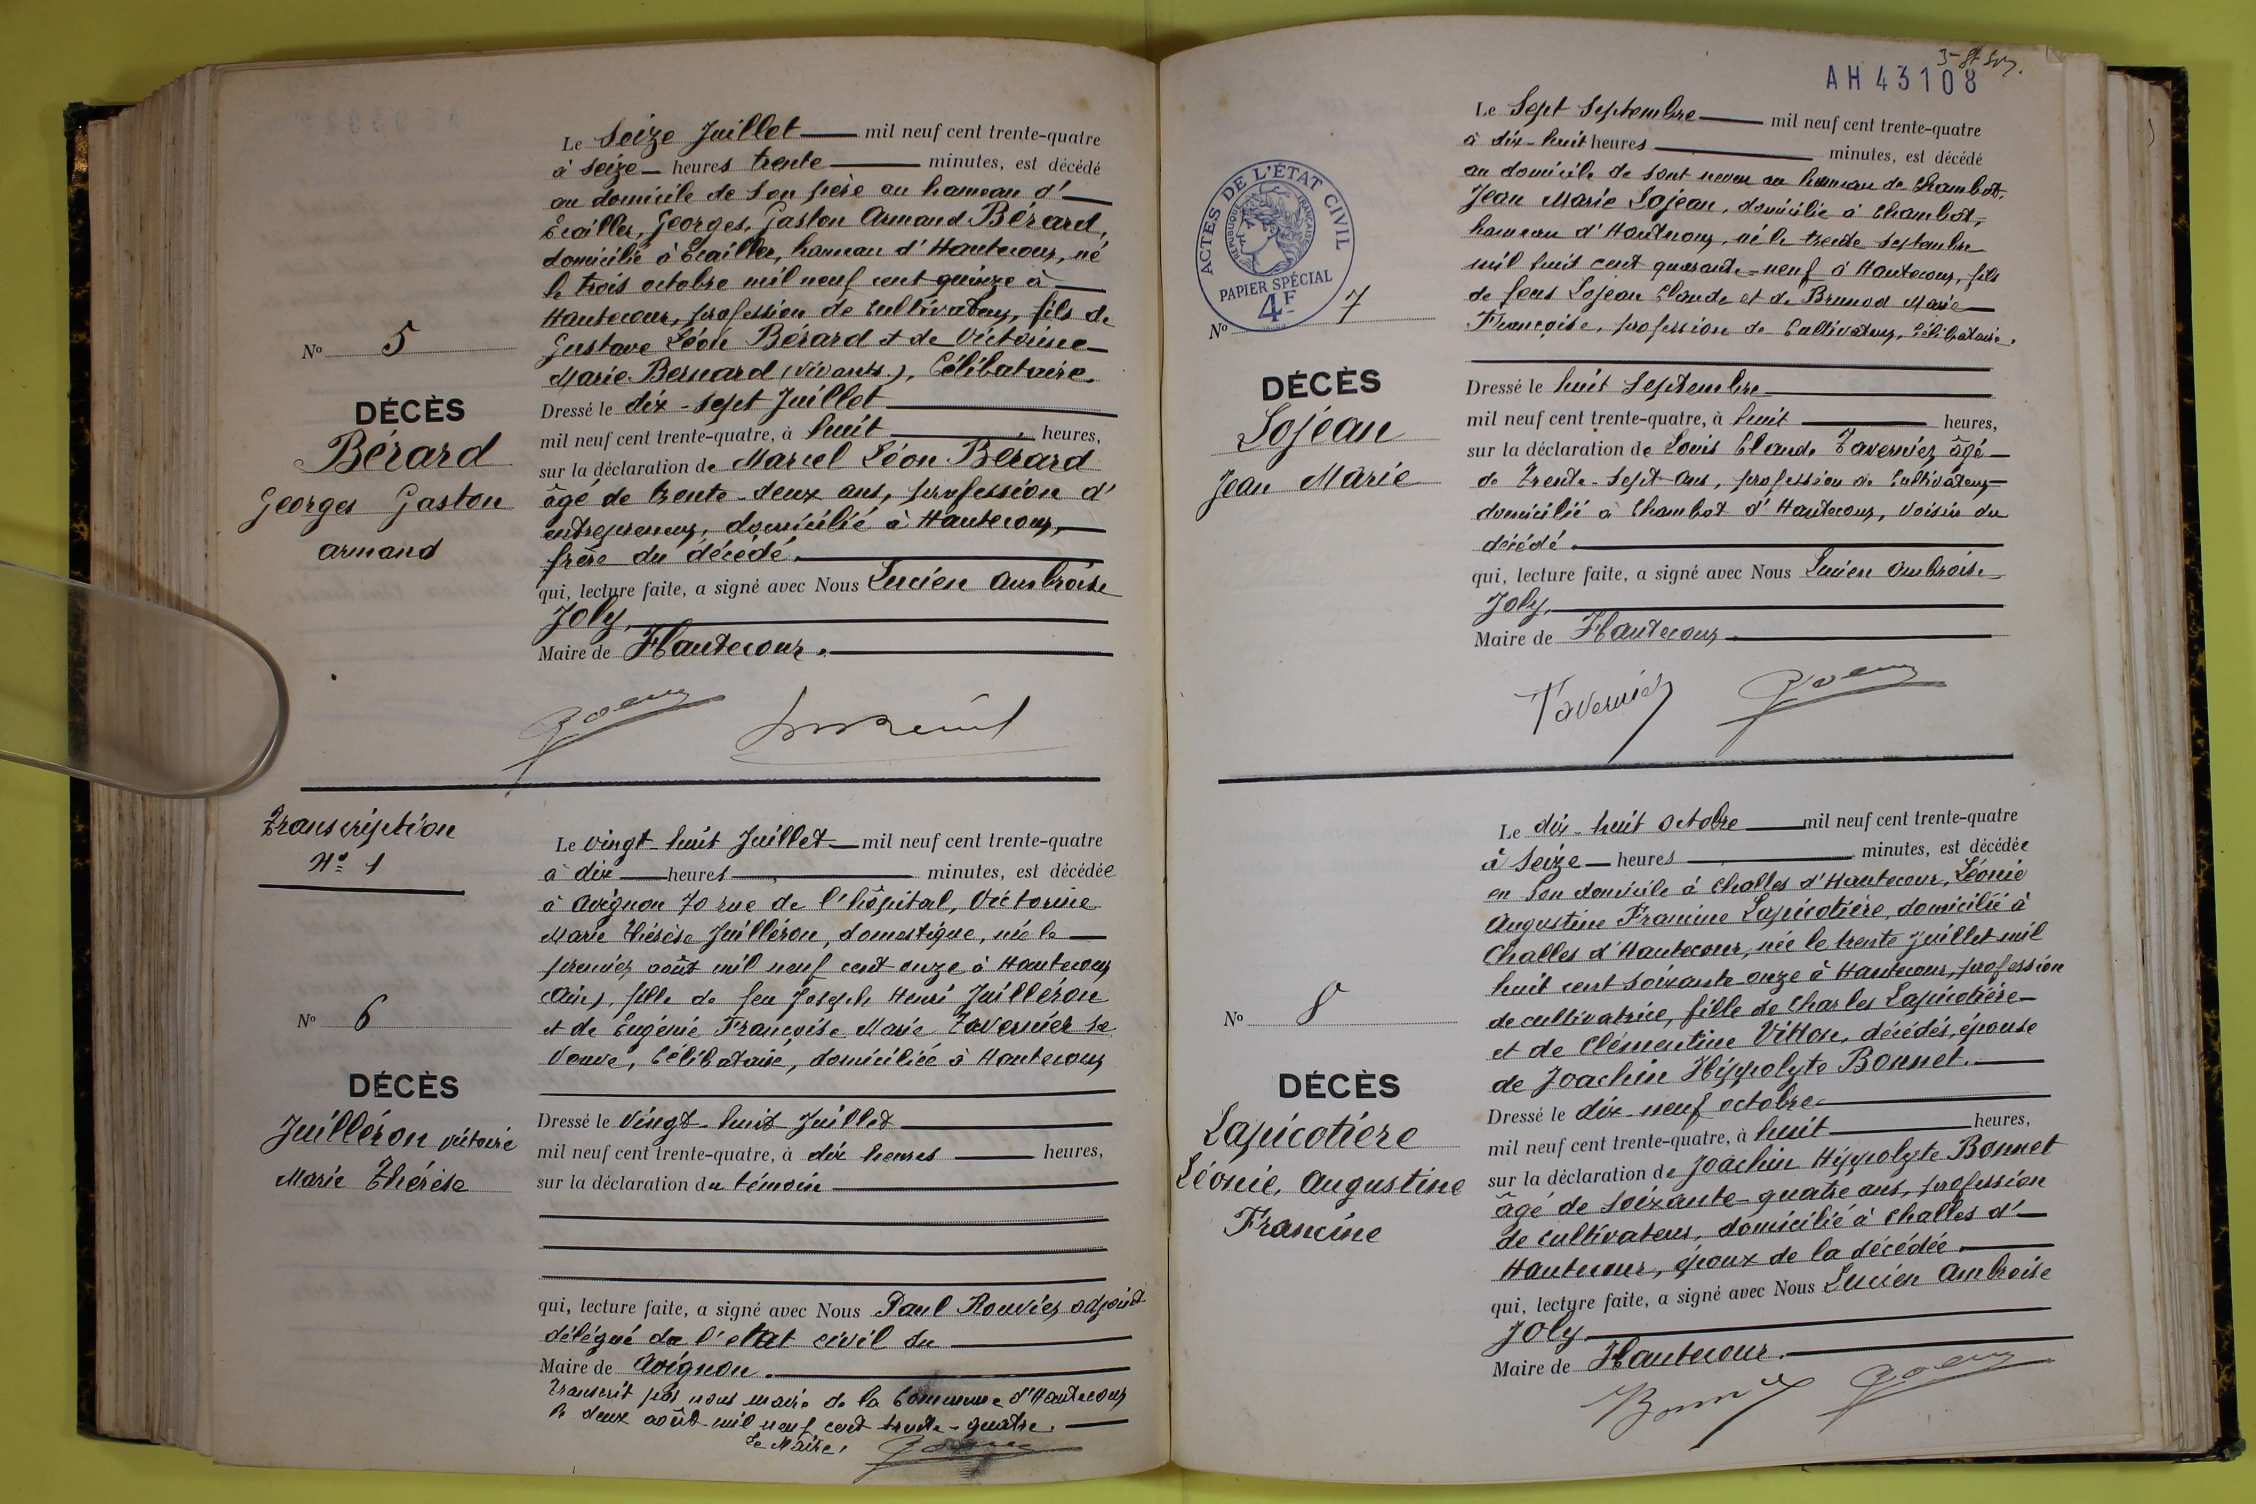 Le Seize Juillet mil neuf cent trente-quatre
à seize heures trente minutes, est décédé
au domicile de son père au hameau d'
Ecailler, Georges, Gaston Armand Bérard,
domicilié à Ecailler, hameau d'Hautecour, né
le trois octobre mil neuf cent quinze à
Hautecour, profession de cultivateur, fils de
Gustave Léon Bérard et de Victorine
Marie Bernard (vivants), Célibataire.
No 5
DÉCÈS
Bérard
Georges Gaston
Armand
Dressé le dix-sept Juillet
mil neuf cent trente-quatre, à huit heures,
sur la déclaration de Marcel Léon Bérard
âgé de trente-deux ans, profession d'
entrepreneur, domicilié à Hautecour,
frère du décédé.
qui, lecture faite, a signé avec Nous Lucien Ambroise
Joly,
Maire de Hautecour.
Transcription
No 1
Le vingt-huit Juillet mil neuf cent trente-quatre
à dix heures minutes, est décédée
à Avignon 70 rue de l'hôpital, Victorine
Marie Thérèse Juilléron, domestique, née le
premier août mil neuf cent onze à Hautecour
(Ain), fille de feu Joseph Henri Juilléron
et de Eugénie Françoise Marie Tavernier sa
Veuve, Célibataire, domiciliée à Hautecour
No 6
DÉCÈS
Juilléron
Marie Thérèse
Dressé le Vingt-huit Juillet
mil neuf cent trente-quatre, à dix heures heures,
sur la déclaration du témoin
qui, lecture faite, a signé avec Nous Paul Rouvier adjoint
délégué de l'etat civil du
Maire de Avignon.
Transcrit par nous maire de la Commune d'Hautecour
le deux août mil neuf cent trente-quatre.
Le Maire,
AH 43108
ACTES DE L'ÉTAT CIVIL
RÉPUBLIQUE FRANÇAISE
PAPIER SPÉCIAL
4F
Le Sept Septembre mil neuf cent trente-quatre
à dix-huit heures minutes, est décédé
au domicile de sont neveu au hameau de Chambot,
Jean Marie Lojean, domicilié à Chambot,
hameau d'Hautecour, né le trente septembre
mil huit cent quarante-neuf à Hautecour, fils
de feus Lojean Claude et de Brunod Marie
Françoise, profession de Cultivateur, Célibataire.
No 7
DÉCÈS
Lojean
Jean Marie
Dressé le huit Septembre
mil neuf cent trente-quatre, à huit heures,
sur la déclaration de Louis Claude Tavernier âgé
de Trente-Sept ans, profession de Cultivateur
domicilié à Chambot d'Hautecour, voisin du
décédé.
qui, lecture faite, a signé avec Nous Lucien Ambroise
Joly,
Maire de Hautecour.
Tavernier
Le dix-huit octobre mil neuf cent trente-quatre
à seize heures minutes, est décédée
en son domicile à Challes d'Hautecour, Léonie
Augustine Francine Lapicotière, domicilié à
Challes d'Hautecour, née le trente juillet mil
huit cent soixante onze à Hautecour, profession
de cultivatrice, fille de Charles Lapicotière
et de Clémentine Vitton, décédés, épouse
de Joachin Hippolyte Bonnet.
No 8
DÉCÈS
Lapicotière
Léonie, Augustine
Francine
Dressé le dix-neuf octobre
mil neuf cent trente-quatre, à huit heures,
sur la déclaration de Joachin Hippolyte Bonnet
âgé de soixante-quatre ans, profession
de cultivateur, domicilié à Challes d'
Hautecour, époux de la décédée.
qui, lecture faite, a signé avec Nous Lucien Ambroise
Joly
Maire de Hautecour.